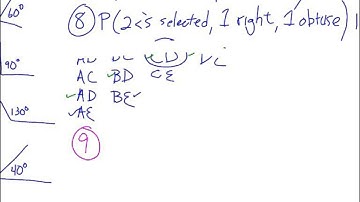 60°
⑧ P(2<'s selected, 1 right, 1 obtuse)
CD
90°
AC ✓BD CE
✓AD BE✓
✓AE
130°
⑨
40°